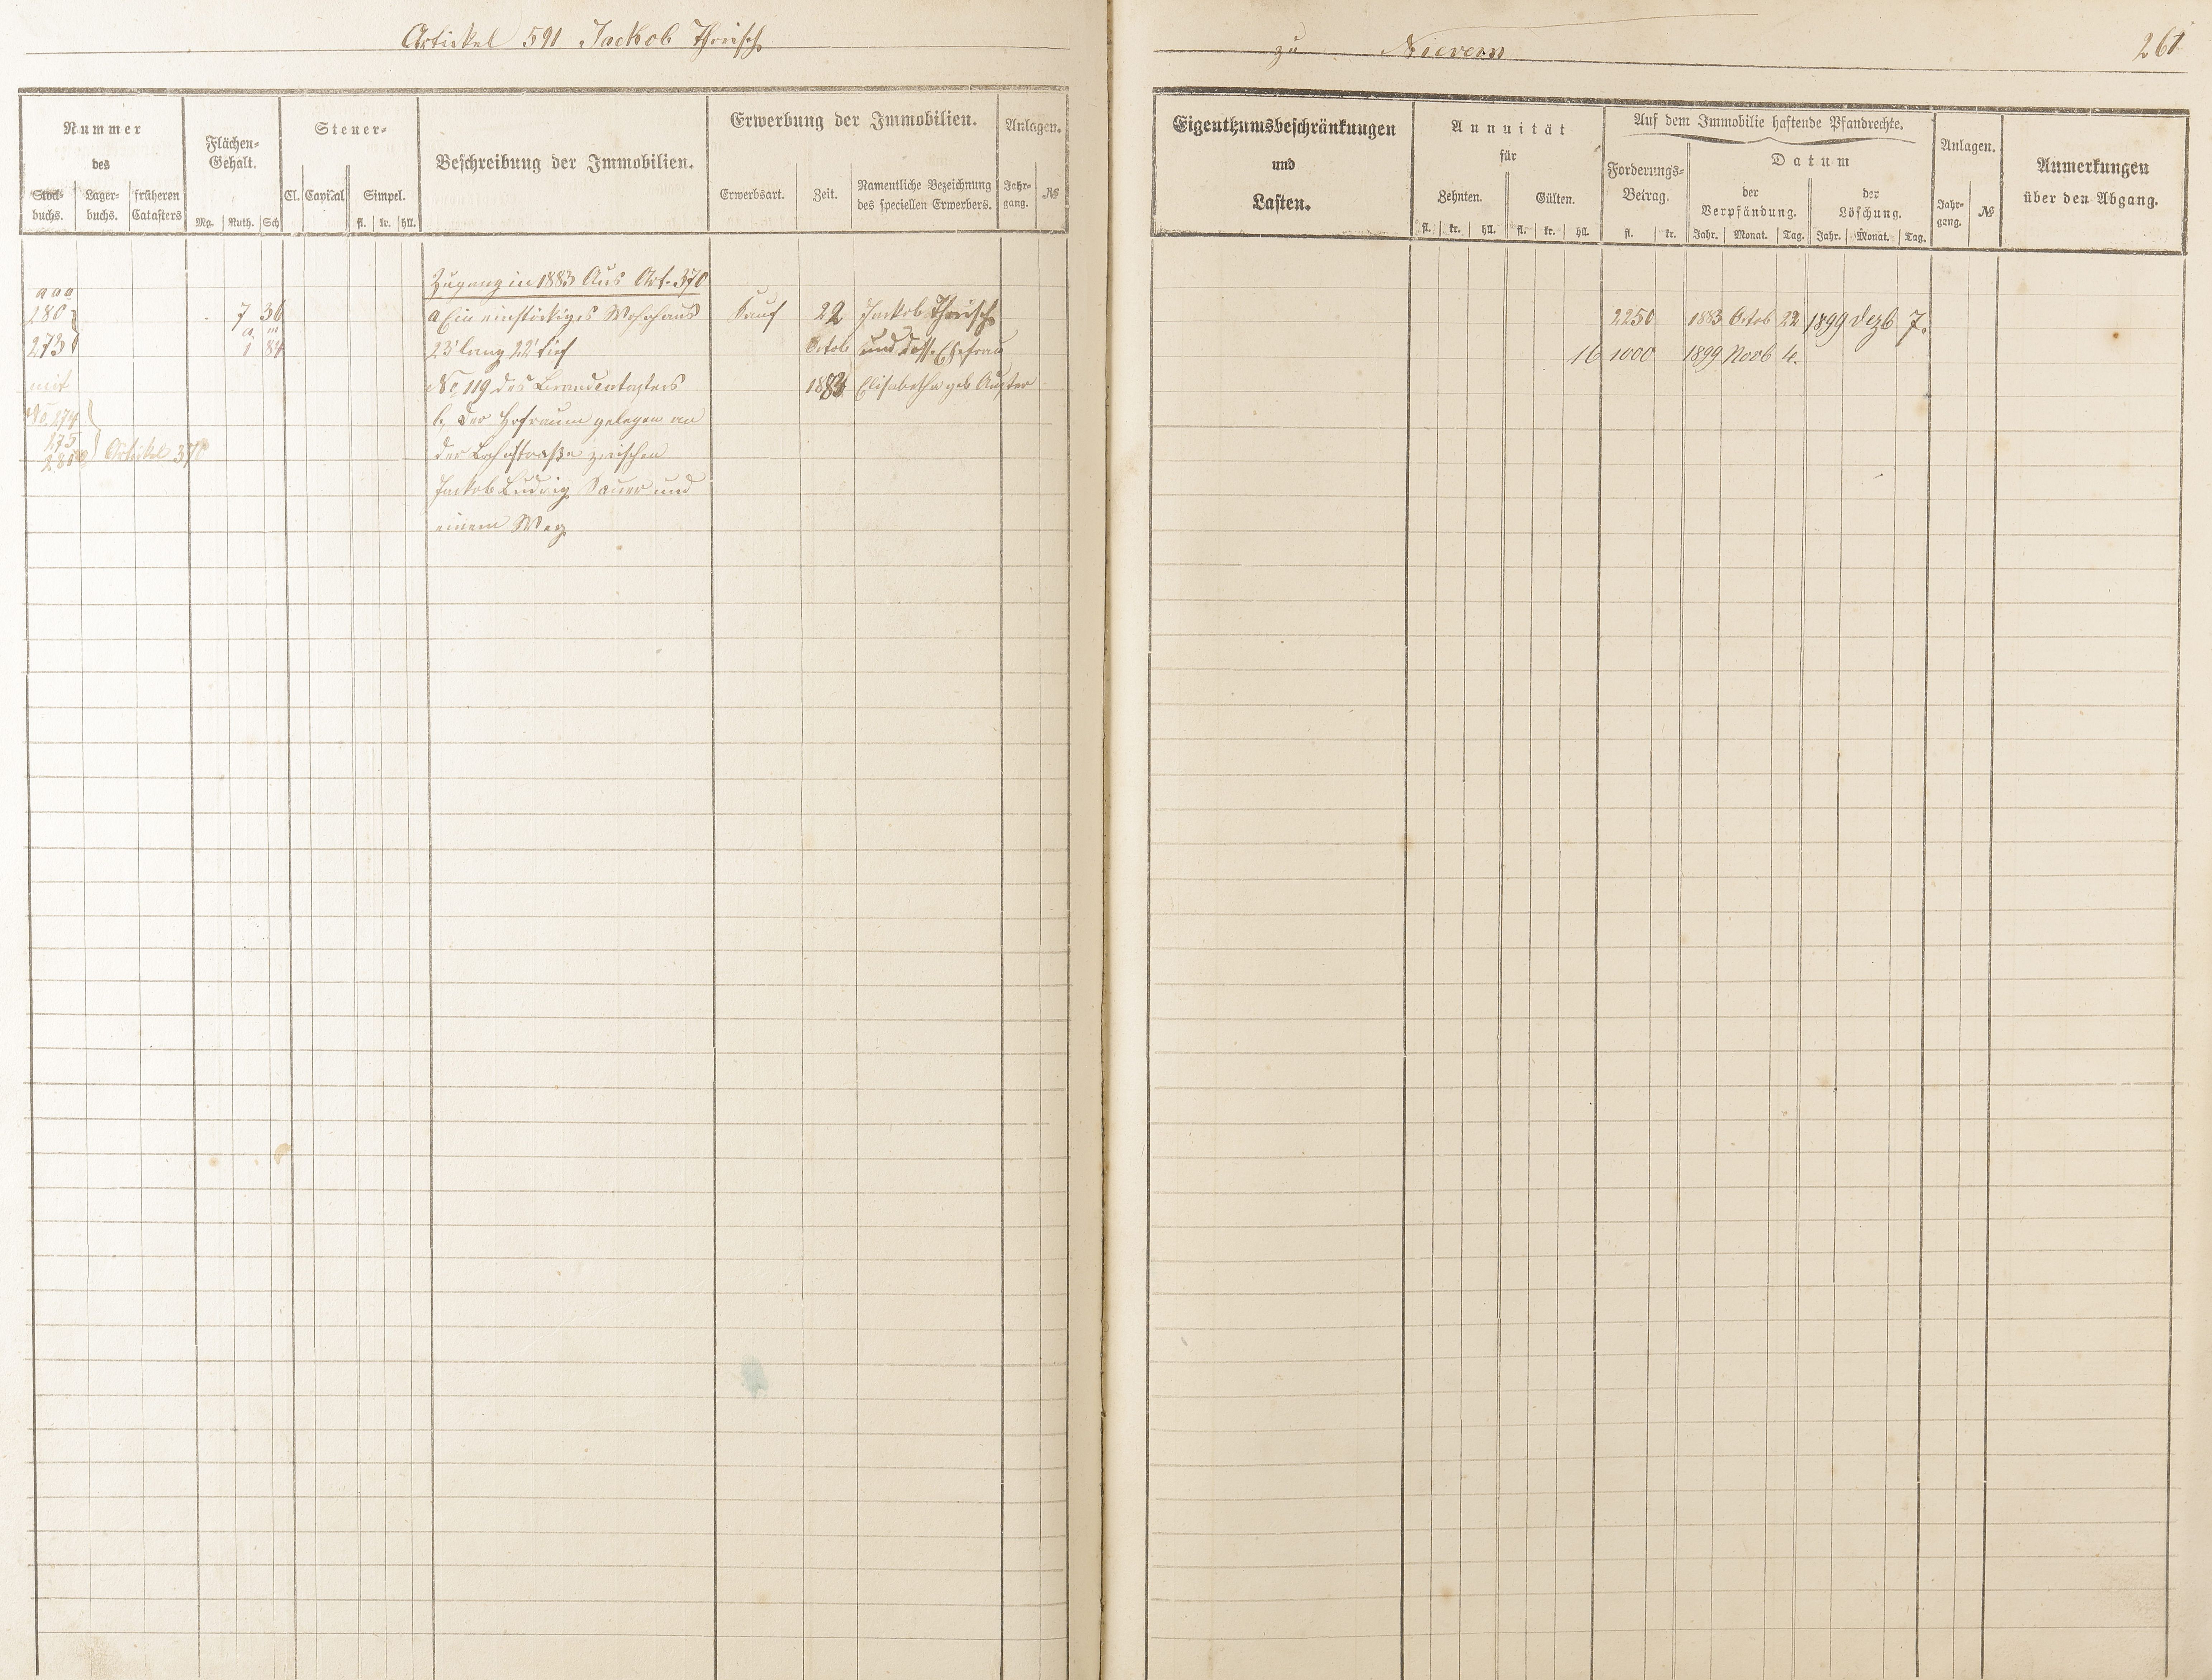 Artickel 591 Jackob Thorisch
Nummer
des
Stock-
buchs.
Lager-
buchs.
früheren
Catasters
Flächen-
Gehalt.
Mg. Ruth. Sch
Steuer-
Cl. Capital Simpel.
fl. kr. hll.
Beschreibung der Immobilien.
Erwerbung der Immobilien.
Erwerbsart. Zeit. Namentliche Bezeichnung
des speciellen Erwerbers.
Anlagen.
Jahr-
gang. №
Zugang in 1883 Aus Art. 370
aaa
180 7 36 a Ein einstöckiges Wohnhaus Kauf 22 Jackob Thorisch
a m
273 1 84 23' lang 22' tief Octob und dess. Ehefrau
mit No 119 des Brandcatasters 1883 Elisabetha geb
No. 274 b, Der Hofraum gelegen an
275
281 Artickel 370 der Lahnstraße zwischen
Jackob Ludwig Sauer und
einem Weg
zu Nievern 261
Eigenthumsbeschränkungen
und
Lasten.
Annuität
für
Zehnten. Gülten.
fl. kr. hll. fl. kr. hll.
Auf dem Immobilie haftende Pfandrechte.
Forderungs-
Betrag.
fl. kr.
Datum
der
Verpfändung.
Jahr. Monat. Tag.
der
Löschung.
Jahr. Monat. Tag.
Anlagen.
Jahr-
gang. №
Anmerkungen
über den Abgang.
2250 1883 Octob 22 1899 Dezb 7.
16 1000 1899 Novb 4.